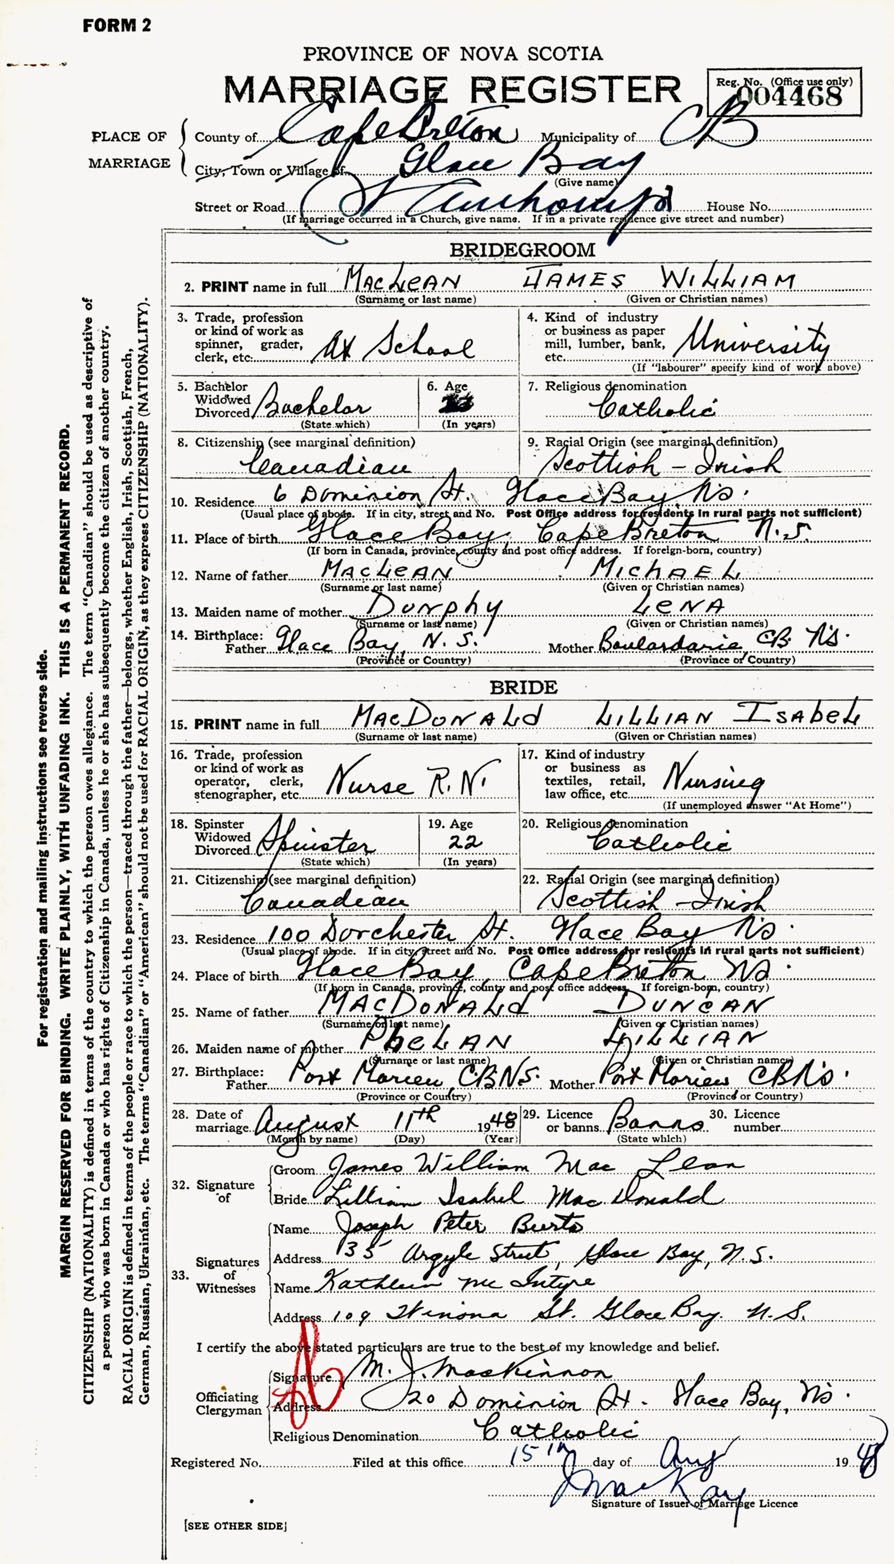 FORM 2
PROVINCE OF NOVA SCOTIA
MARRIAGE REGISTER
Reg. No. (Office use only)
004468
PLACE OF MARRIAGE
County of Cape Breton Municipality of CB
City, Town or Village of Glace Bay
(Give name)
Street or Road St House No.
(If marriage occurred in a Church, give name. If in a private residence give street and number)
BRIDEGROOM
2. PRINT name in full MacLean James William
(Surname or last name) (Given or Christian names)
3. Trade, profession or kind of work as spinner, grader, clerk, etc. At School
4. Kind of industry or business as paper mill, lumber, bank, etc. University
(If "labourer" specify kind of work above)
5. Bachelor Widowed Divorced Bachelor
(State which)
6. Age
(In years)
7. Religious denomination
Catholic
8. Citizenship (see marginal definition)
Canadian
9. Racial Origin (see marginal definition)
Scottish - Irish
10. Residence 6 Dominion St. Glace Bay NS.
(Usual place of abode. If in city, street and No. Post Office address for residents in rural parts not sufficient)
11. Place of birth Glace Bay, Cape Breton N.S.
(If born in Canada, province, county and post office address. If foreign-born, country)
12. Name of father MacLean Michael
(Surname or last name) (Given or Christian names)
13. Maiden name of mother Dunphy Lena
(Surname or last name) (Given or Christian names)
14. Birthplace: Father Glace Bay, N.S. Mother Boulardarie CB NS.
(Province or Country) (Province or Country)
BRIDE
15. PRINT name in full MacDonald Lillian Isabel
(Surname or last name) (Given or Christian names)
16. Trade, profession or kind of work as operator, clerk, stenographer, etc. Nurse R.N.
17. Kind of industry or business as textiles, retail, law office, etc. Nursing
(If unemployed answer "At Home")
18. Spinster Widowed Divorced Spinster
(State which)
19. Age
22
(In years)
20. Religious denomination
Catholic
21. Citizenship (see marginal definition)
Canadian
22. Racial Origin (see marginal definition)
Scottish - Irish
23. Residence 100 Dorchester St. Glace Bay NS.
(Usual place of abode. If in city, street and No. Post Office address for residents in rural parts not sufficient)
24. Place of birth Glace Bay, Cape Breton NS.
(If born in Canada, province, county and post office address. If foreign-born, country)
25. Name of father MacDonald Duncan
(Surname or last name) (Given or Christian names)
26. Maiden name of mother Phelan Lillian
(Surname or last name) (Given or Christian names)
27. Birthplace: Father Port Morien, CB N.S. Mother Port Morien CB NS.
(Province or Country) (Province or Country)
28. Date of marriage August 11th 1948
(Month by name) (Day) (Year)
29. Licence or banns Banns
(State which)
30. Licence number
32. Signature of
Groom James William MacLean
Bride Lillian Isabel MacDonald
33. Signatures of Witnesses
Name Joseph Peter
Address 135 Argyle Street, Glace Bay, N.S.
Name Kathleen McIntyre
Address 109 Winona St. Glace Bay. N.S.
I certify the above stated particulars are true to the best of my knowledge and belief.
Officiating Clergyman
Signature M. J. MacKinnon
Address 20 Dominion St. Glace Bay, NS.
Religious Denomination Catholic
Registered No. Filed at this office 15th day of Aug 1948
J MacKay
Signature of Issuer of Marriage Licence
[SEE OTHER SIDE]
For registration and mailing instructions see reverse side.
MARGIN RESERVED FOR BINDING. WRITE PLAINLY, WITH UNFADING INK. THIS IS A PERMANENT RECORD.
CITIZENSHIP (NATIONALITY) is defined in terms of the country to which the person owes allegiance. The term "Canadian" should be used as descriptive of
a person who was born in Canada or who has rights of Citizenship in Canada, unless he or she has subsequently become the citizen of another country.
RACIAL ORIGIN is defined in terms of the people or race to which the person—traced through the father—belongs, whether English, Irish, Scottish, French,
German, Russian, Ukrainian, etc. The terms "Canadian" or "American" should not be used for RACIAL ORIGIN, as they express CITIZENSHIP (NATIONALITY).